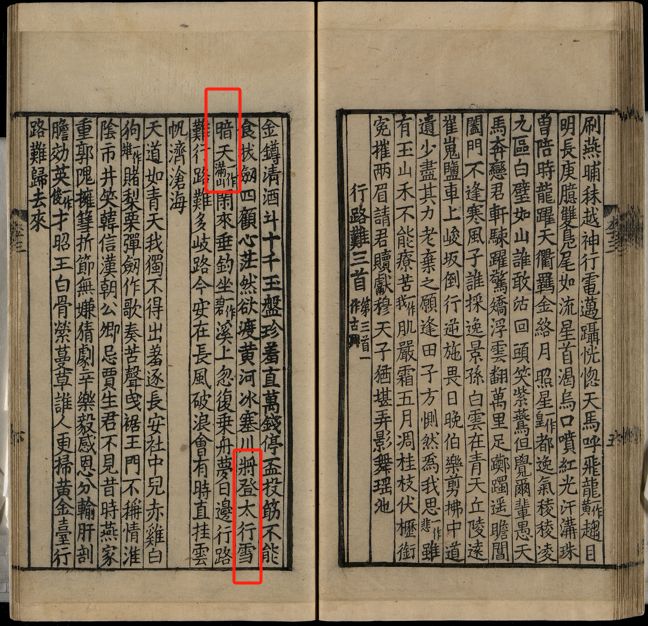 刷燕晡秣越神行電邁躡恍惚天馬呼飛龍黃一作趨目
明長庚臆雙鳧尾如流星首渴烏口噴紅光汗溝珠
曾陪時龍躍天衢羈金絡月照星皇一作都逸氣稜稜凌
九區白璧如山誰敢沽回頭笑紫燕但覺爾輩愚天
馬奔戀君軒駷躍驚矯浮雲翻萬里足躑躅遙瞻閶
闔門不逢寒風子誰採逸景孫白雲在青天丘陵遠
崔嵬鹽車上峻坂倒行逆施畏日晚伯樂剪拂中道
遺少盡其力老棄之願逢田子方惻然爲我思一作悲雖
有玉山禾不能療苦一作我肌嚴霜五月凋桂枝伏櫪銜
冤摧兩眉請君贖獻穆天子猶堪弄影舞瑤池
行路難三首第三首一作古興
金罇清酒斗十千玉盤珍羞直萬錢停盃投筯不能
食拔劒四顧心茫然欲渡黃河冰塞川將登太行雪
暗天一作滿山閑來垂釣坐一作碧溪上忽復乗舟夢日邊行路
難行路難多歧路今安在長風破浪會有時直挂雲
帆濟滄海
天道如青天我獨不得出羞逐長安社中兒赤雞白
狗一作雉賭梨栗彈劒作歌奏苦聲曳裾王門不稱情淮
陰市井笑韓信漢朝公卿忌賈生君不見昔時燕家
重郭隗擁篲折節無嫌猜劇辛樂毅感恩分輸肝剖
膽効英一作俊才昭王白骨縈蔓草誰人更掃黃金臺行
路難歸去來